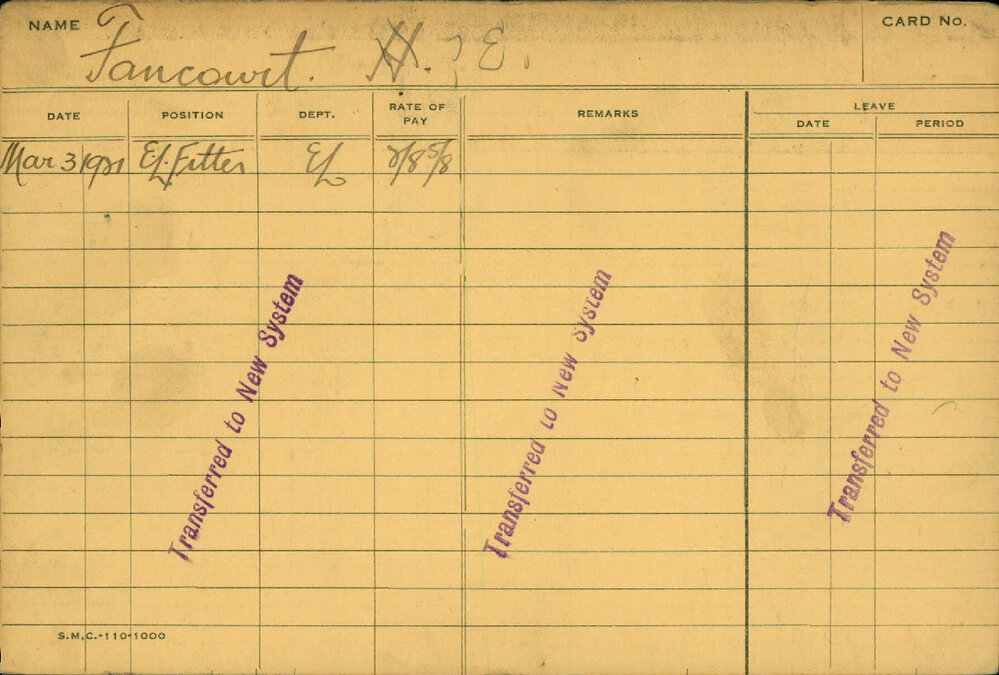 NAME Fancourt. H. ? E.
CARD No.
DATE POSITION DEPT. RATE OF PAY REMARKS LEAVE
DATE PERIOD
Mar 3 1921 El. Fitter El
Transferred to New System
Transferred to New System
Transferred to New System
S.M.C.-110-1000